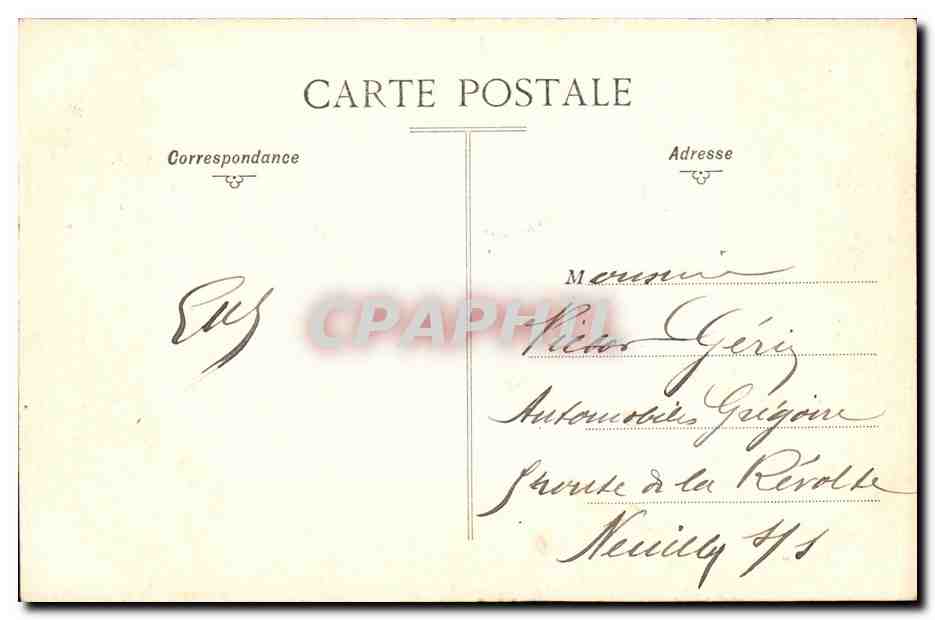 CARTE POSTALE
Correspondance
Adresse
Monsieur
CPAPHIL
Victor Géri
Automobiles Grégoire
5 route de la Révolte
Neuilly s/s